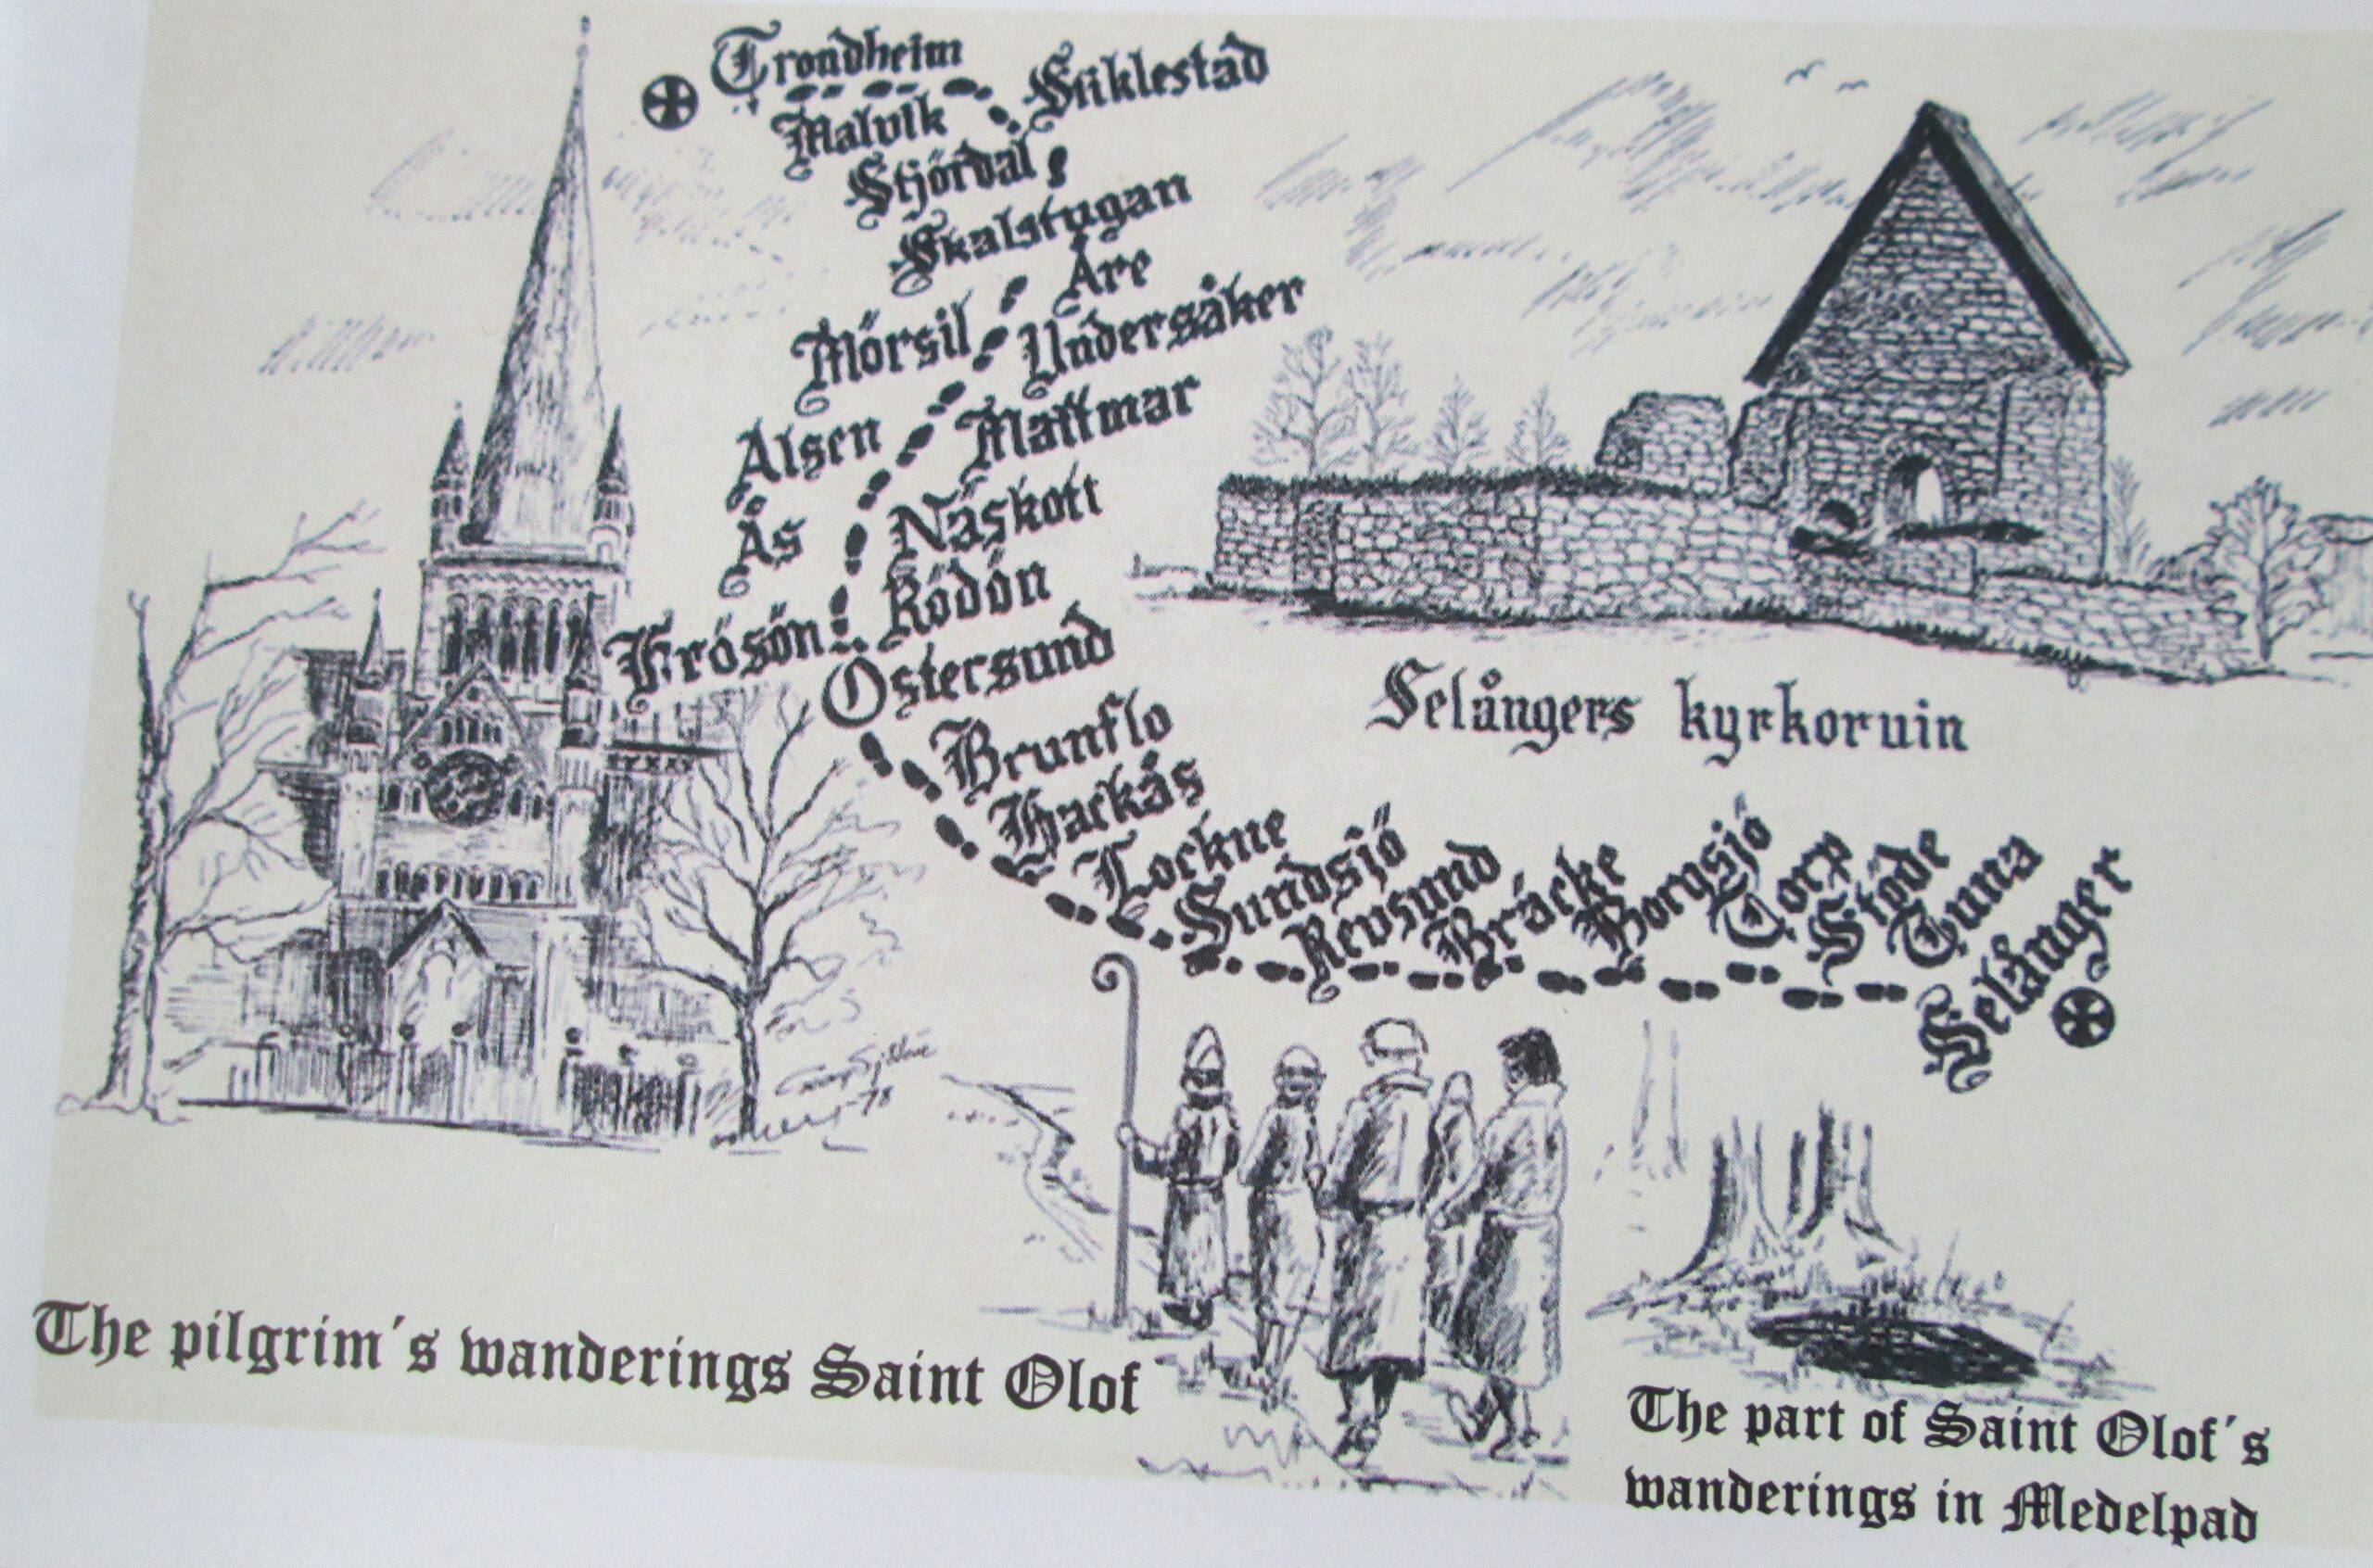 Trondheim
Stiklestad
Malvik
Stjördal
Skalstugan
Åre
Mörsil
Undersåker
Alsen
Mattmar
Ås
Näskott
Rödön
Frösön
Östersund
Brunflo
Hackås
Lockne
Sundsjö
Revsund
Bräcke
Borgsjö
Torp
Stöde
Tuna
Selånger
Selångers kyrkoruin
The pilgrim´s wanderings Saint Olof
The part of Saint Olof´s
wanderings in Medelpad